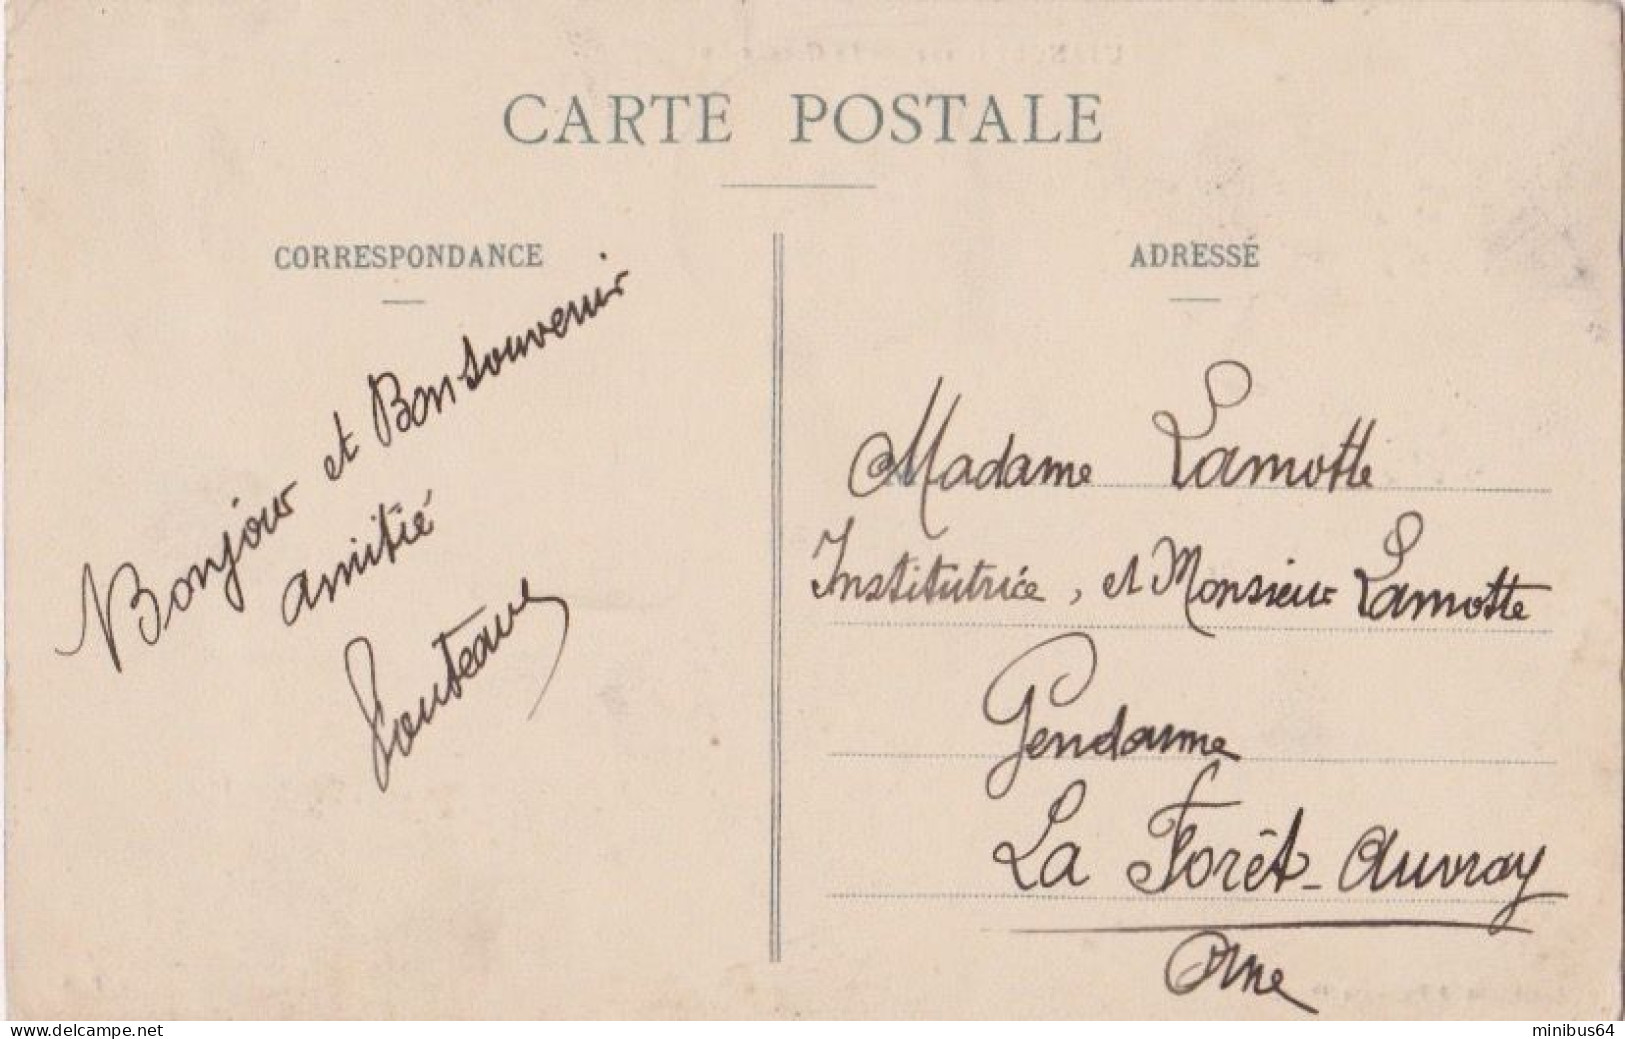 CARTE POSTALE
CORRESPONDANCE
Bonjour et Bon souvenir
amitié
ADRESSE
Madame Lamotte
Institutrice, et Monsieur Lamotte
Gendarme
La Forêt-Auvray
Orne
www.delcampe.net
minibus64